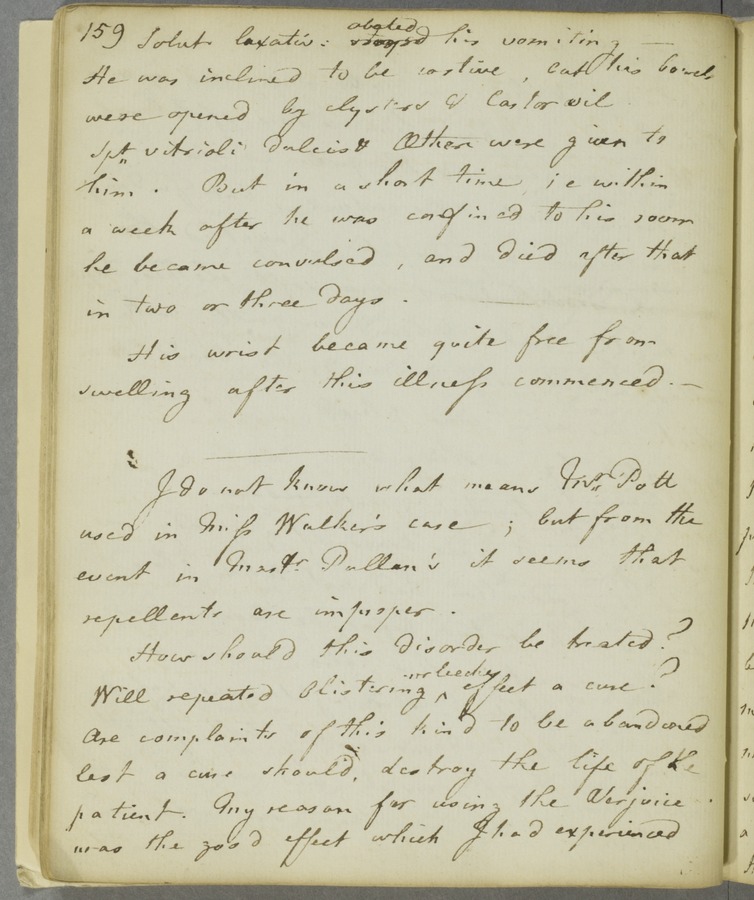 159 Solut laxativ: abated his vomiting —
He was inclined to be costive, but his bowels
were opened by clysters & Castor oil
Spt vitrioli dulcis & Æther were given to
him. But in a short time, ie within
a week after he was confined to his room
he became convulsed, and died after that
in two or three days.
His wrist became quite free from
swelling after this illness commenced. —
I do not know what means Mr. Pott
used in Miss Walker's case; but from the
event in Mastr Pullan's it seems that
repellents are improper.
How should this disorder be treated?
or leeches
Will repeated Blistering ^ effect a cure?
Are complaints of this kind to be abandoned
lest a cure should destroy the life of the
patient. My reason for using the Verjuice
was the good effect which I had experienced